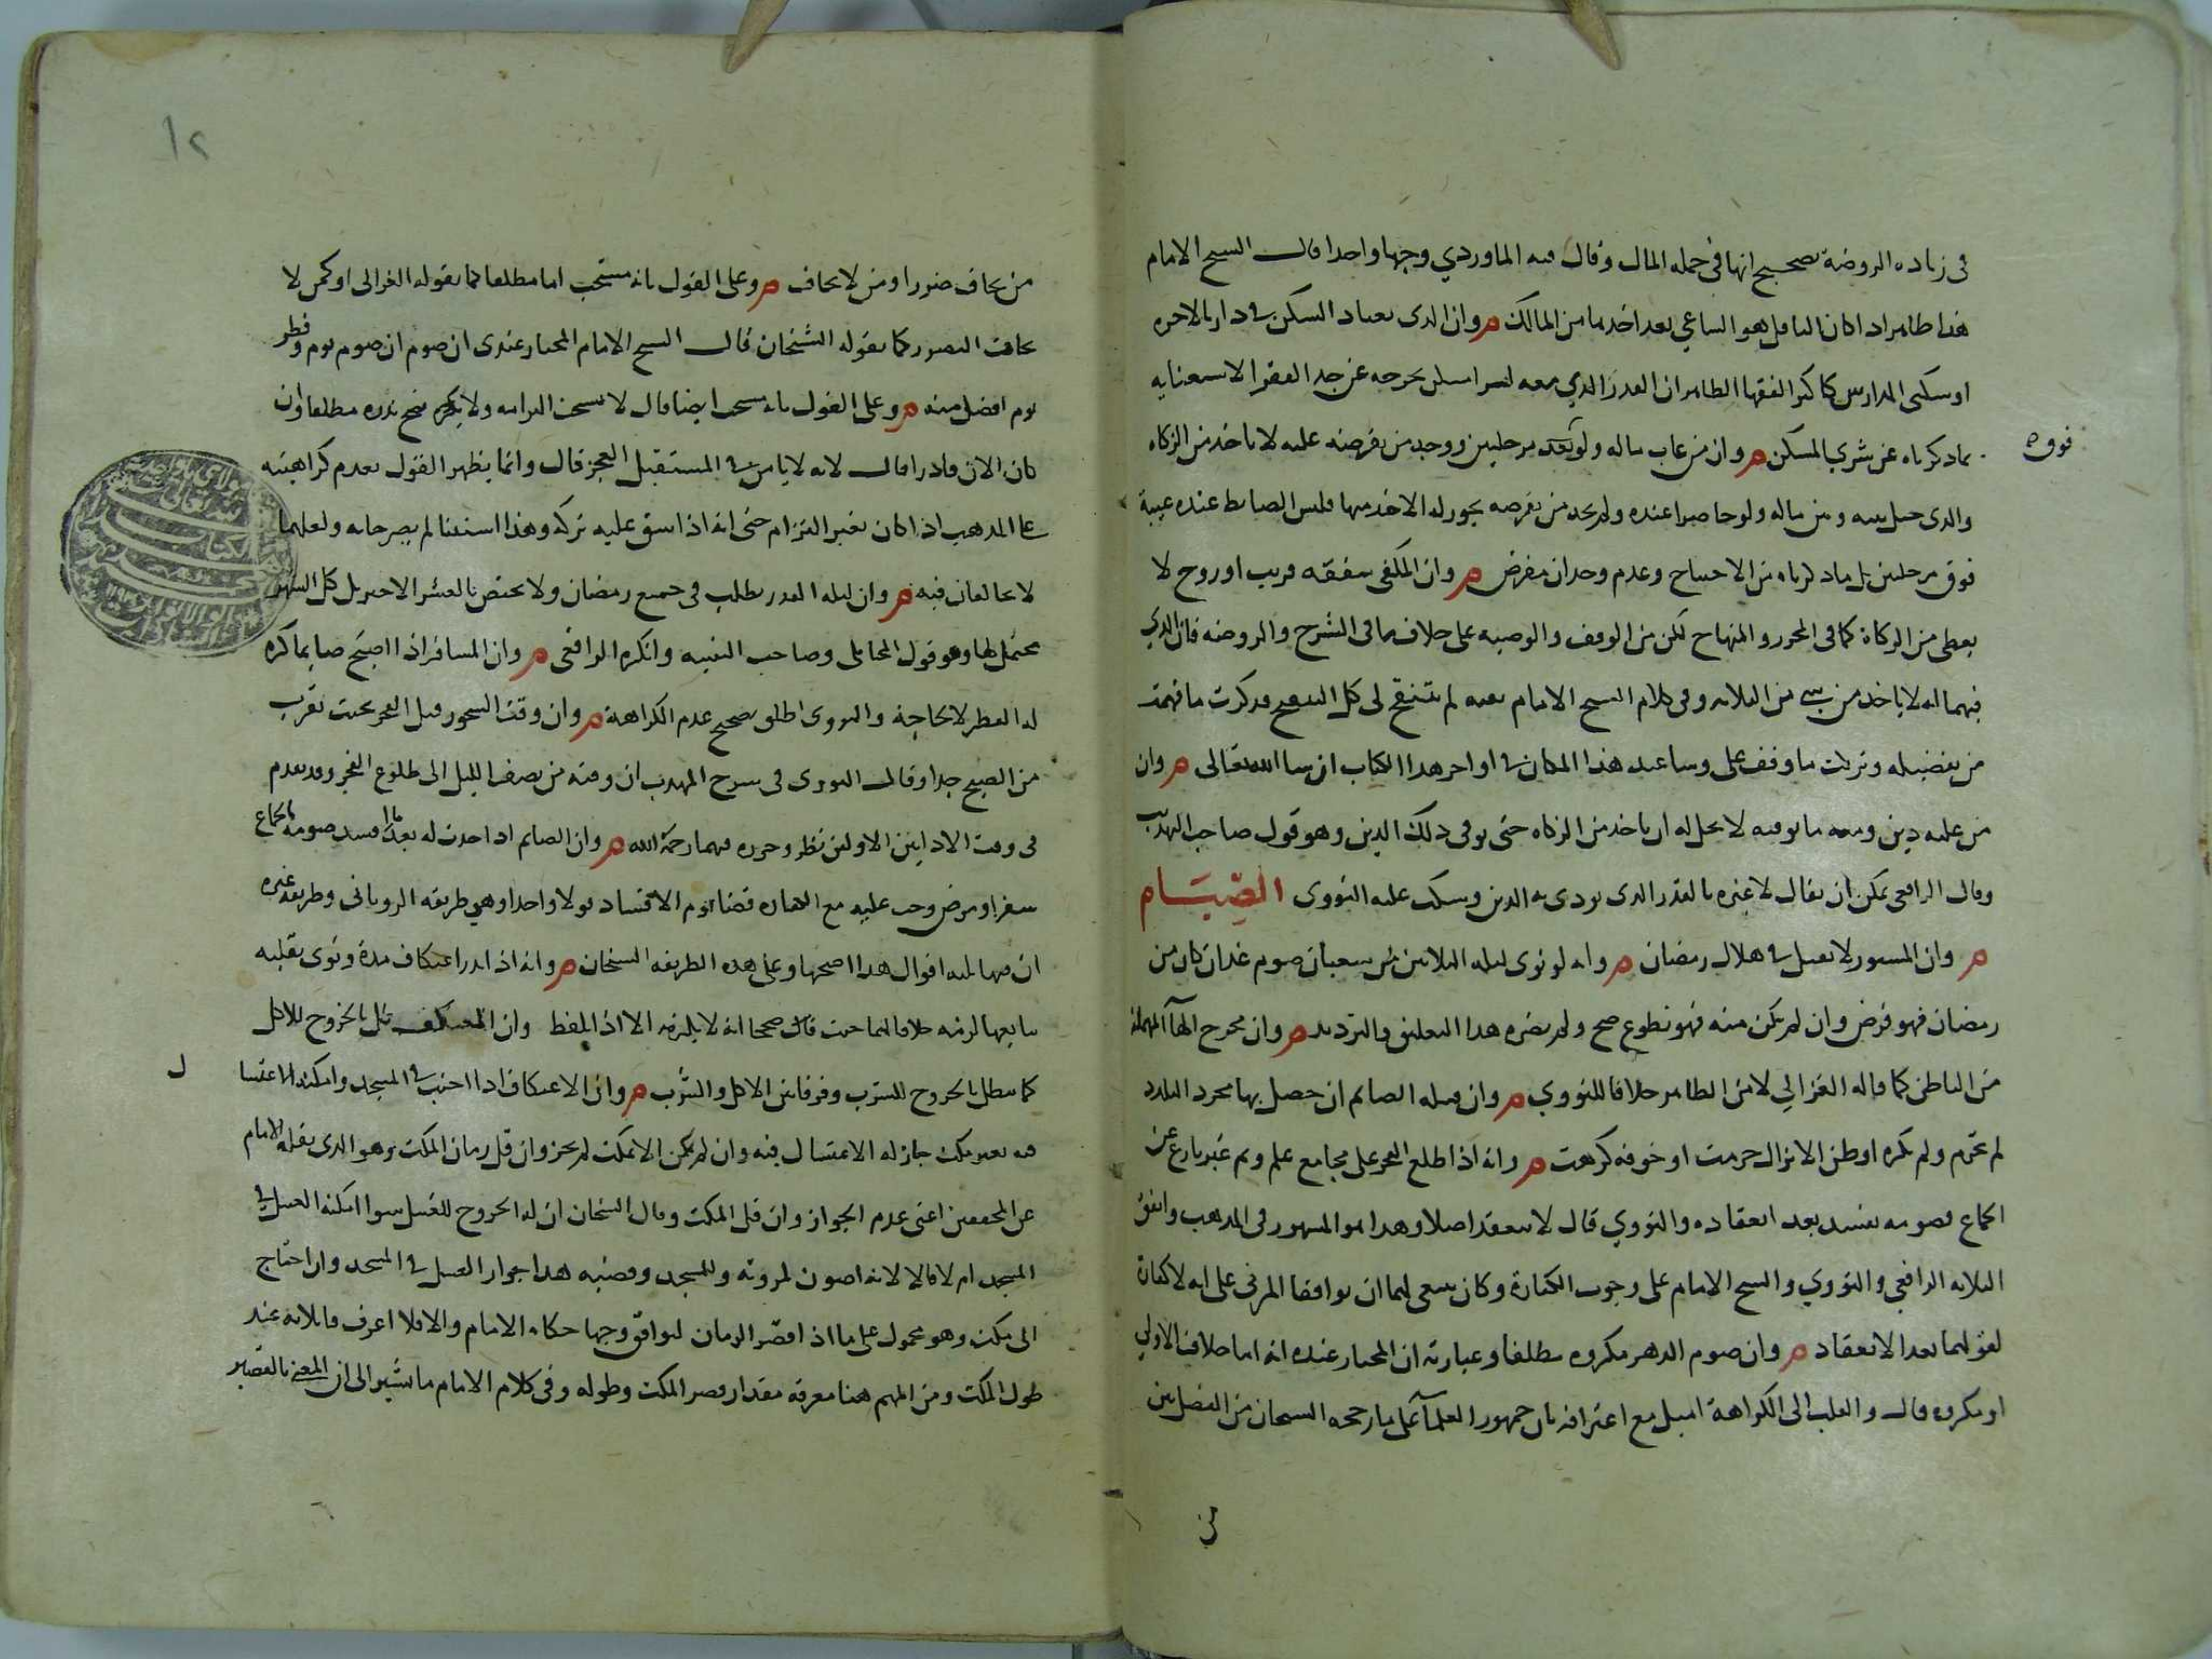 في زياده الروضة تصحيح انها في جمله المال وقال فيه الماوردي وجها واحدا قال الشيخ الامام
هذا ظاهر اذا كان الناقل هو الساعي بعد اخذها من المالك م وان الذي يعتاد السكن في دار بالاجره
او سكنى المدارس كاكثر الفقها الظاهر ان القدر الذي معه لشرا مسكن يخرجه عن حد الفقر الاستغنايه
بما ذكرناه عن شري المسكن م وان من غاب ماله ولو بعد مرحلتين ووجد من يقرضه عليه لا ياخذ من الزكاه
فوق
والذي حيل بينه وبين ماله ولو حاضرا عنده ولم يجد من يقرضه يجوز له الاخذ منها فليس الضابط عنده غيبة
فوق مرحلتين بل ما ذكرناه من الاحتياج وعدم وجدان مقرض م وان المكفي بنفقه قريب او زوج لا
يعطى من الزكاة كما في المحرر والمنهاج لكن من الوقف والوصيه على خلاف ما في الشرح والروضه فان الذي
فيهما انه لا ياخذ من شي من الثلاثه وفي كلام الشيخ الامام بعد لم يتنقح لي كل التنقيح فذكرت ما فهمته
من تفضيله وتركت ما وقف علي وساعيد هذا المكان في اواخر هذا الكتاب ان شا الله تعالى م وان
من عليه دين ومعه ما يوفيه لا يحل له ان ياخذ من الزكاه حتى يوفي ذلك الدين وهو قول صاحب التهذيب
وقال الرافعي يمكن ان يقال لا عبره بالقدر الذي يودى به الدين وسكت عليه النووي الصيام
م وان المستور لا يقبل في هلال رمضان م وانه لو نوى ليله الثلاثين من شعبان صوم غد ان كان من
رمضان فهو فرض وان لم يكن منه فهو تطوع صح ولم يضره هذا التعليق والترديد م وان مخرج الحآ المهملة
من الباطن كما قاله الغزالي لا من الظاهر خلافا للنووي م وان قبله الصائم ان حصل بها مجرد التلذذ
لم تحرم ولم تكره او ظن الانزال حرمت او خوفه كرهت م وانه اذا طلع الفجر على مجامع علم ونم غير نازع عن
الجماع فصومه يفسد بعد انعقاده والنووي قال لا ينعقد اصلا وهذا هو المشهور في المذهب واتفق
الثلاثه الرافعي والنووي والشيخ الامام على وجوب الكفارة وكان ينبغي لهما ان يوافقا المزني على انه لا كفارة
لقولهما بعد الانعقاد م وان صوم الدهر مكروه مطلقا وعبارته ان المختار عنده انه اما خلاف الاولى
او مكروه قال والقلب الى الكراهة اميل مع اعترافه بان جمهور العلمآ على ما رجحه الشيخان من التفضيل بين
من
١٢
من يخاف ضررا ومن لا يخاف م وعلى القول بانه مستحب اما مطلقا كما يقوله الغزالي او كمن لا
يخاف التضرر كما يقوله الشيخان قال الشيخ الامام المختار عندي ان صوم ان صوم يوم وفطر
يوم افضل منه م وعلى القول بانه مستحب ايضا قال لا يستحب التزامه ولا يكره فيصح نذره مطلقا وان
كان الان قادرا قال لانه لا يامن في المستقبل العجز قال وانما يظهر القول بعدم كراهيته
على المذهب اذا كان بغير التزام حتى انه اذا شق عليه تركه وهذا استثنا لم يصرحا به ولعلهما
لا يخالفان فيه م وان ليله القدر تطلب في جميع رمضان ولا تختص بالعشر الاخير بل كل الشهر
محتمل لها وهو قول المحاملي وصاحب التنبيه وانكره الرافعي م وان المسافر اذا اصبح صايما كره
له الفطر لا لحاجة والنووي اطلق تصحيح عدم الكراهة م وان وقت السحور قبل الفجر بحيث يقرب
من الصبح جدا وقال النووي في شرح المهذب ان وقته من نصف الليل الى طلوع الفجر وقد تقدم
في وقت الاذانين الاولين نظر وحرره فيهما رحمة الله م وان الصايم اذا حدث له بعد ما افسد صومه بالجماع
سفر او مرض وجب عليه مع الكفاره قضا يوم الافساد قولا واحدا وهي طريقه الروياني وطريقه غيره
ان فيها ثلثه اقوال هذا اصحها وعلى هذه الطريقه الشيخان م وانه اذا نذر اعتكاف مدة ونوى بقلبه
تتابعها لزمه خلافا لهما حيث قالا صححا انه لا يلزمه الا اذا تلفظ وان المعتكف يبطل بالخروج للاكل
كما يبطل بالخروج للشرب وفرقا بين الاكل والشرب م وان الاعتكاف اذا اجنب في المسجد وامكنه الاغتسا
ل
فيه بغير مكث جاز له الاغتسال فيه وان لم يمكن الا بمكث لم يجز وان قل زمان المكث وهو الذي نقله الامام
عن المحققين اعني عدم الجواز وان قل المكث وقال الشيخان ان له الخروج للغسل سوا امكنه الغسل في
المسجد ام لا قالا لانه اصون لمروته وللمسجد وقضيه هذا جواز الغسل في المسجد وان احتاج
الى مكث وهو محمول على ما اذا قصر الزمان ليوافق وجها حكاه الامام والا فلا اعرف قائلا به عند
طول المكث ومن المهم هنا معرفه مقدار قصر المكث وطوله وفي كلام الامام ما يشير الى ان المعنى بالقصير